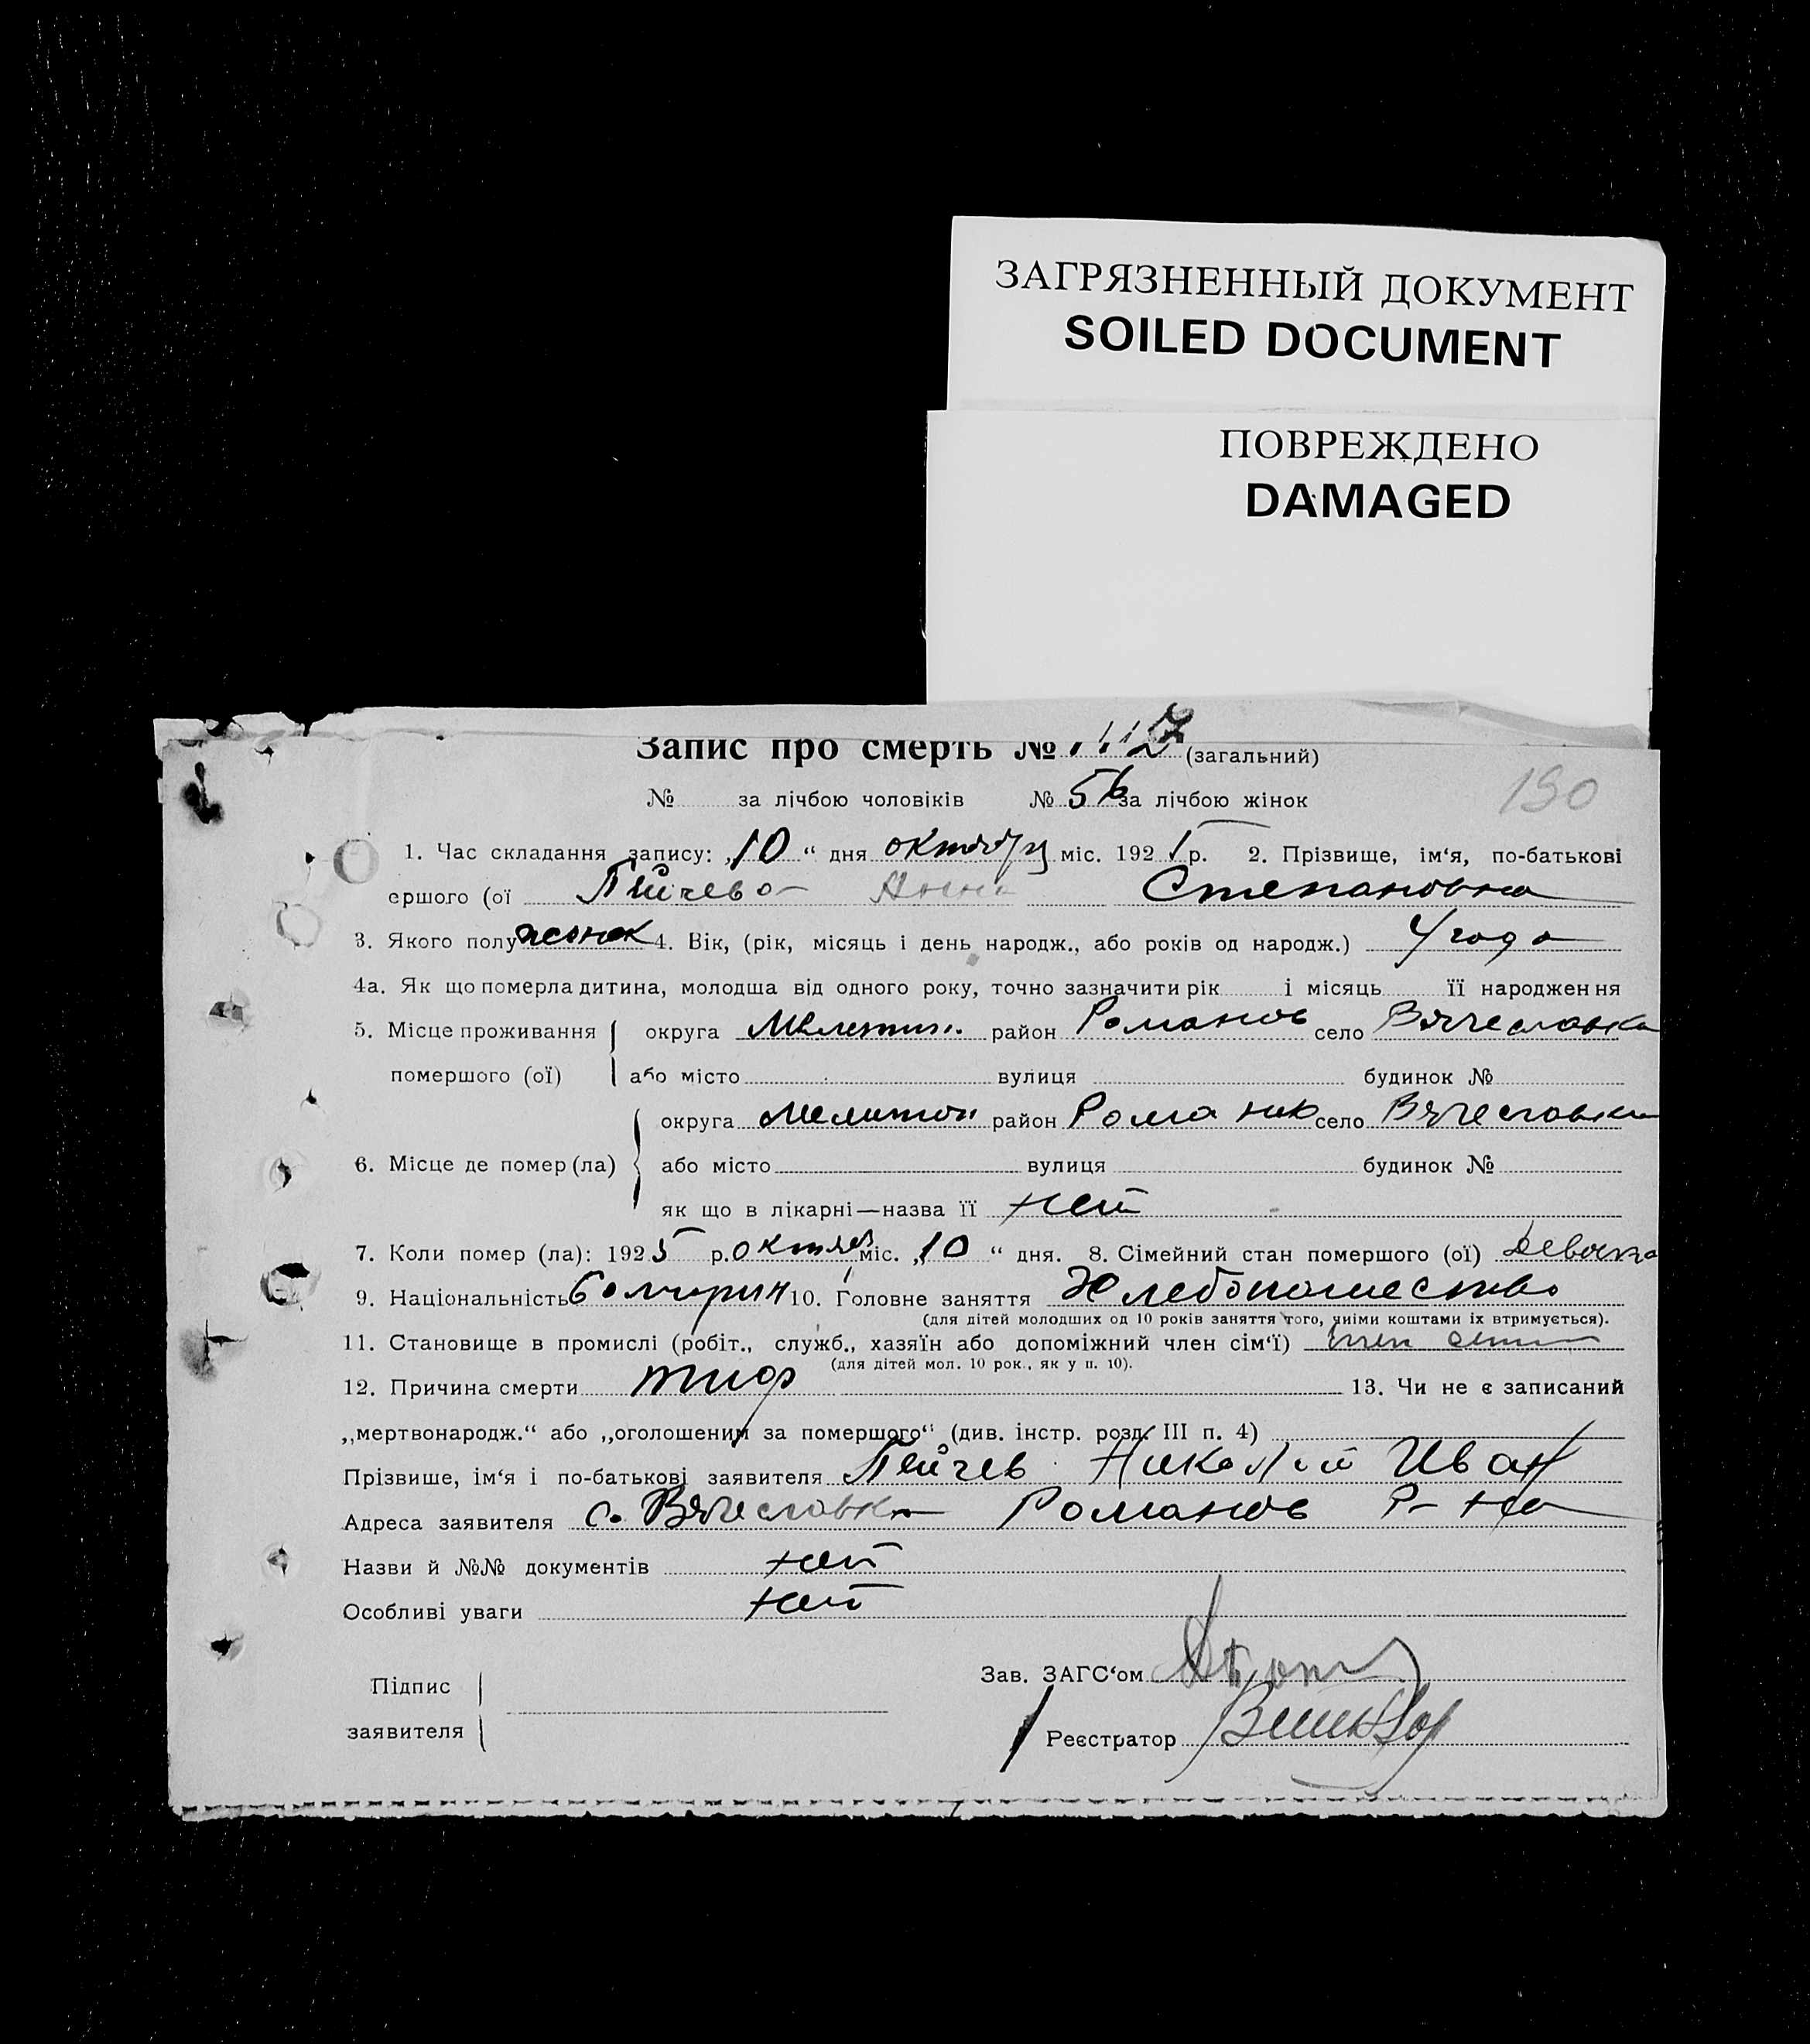 ЗАГРЯЗНЕННЫЙ ДОКУМЕНТ
SOILED DOCUMENT
ПОВРЕЖДЕНО
DAMAGED
Запис про смерть № 117 (загальний)
№ за лічбою чоловіків № 56 за лічбою жінок
190
1. Час складання запису: „10“ дня октября міс. 1925 р. 2. Прізвище, ім‘я, по-батькові
ершого (ої Пейчева Анна Степановна
3. Якого полу женск 4. Вік, (рік, місяць і день народж., або років од народж.) 4 года
4а. Як що померла дитина, молодша від одного року, точно зазначити рік і місяць її народження
5. Місце проживання округа Мелитоп. район Романов село Вячеславка
помершого (ої) або місто вулиця будинок №
округа Мелитоп район Романов село Вячеславка
6. Місце де помер (ла) або місто вулиця будинок №
як що в лікарні—назва її нет
7. Коли помер (ла): 1925 р. октяб міс. „10“ дня. 8. Сімейний стан помершого (ої) девочка
9. Національність болгарин 10. Головне заняття Хлебопашество
(для дітей молодших од 10 років заняття того, чиїми коштами їх втримується).
11. Становище в промислі (робіт., служб., хазяїн або допоміжний член сім‘ї) член семи
(для дітей мол. 10 рок., як у п. 10).
12. Причина смерти тиф 13. Чи не є записаний
„мертвонародж.“ або „оголошеним за помершого“ (див. інстр. розд. III п. 4)
Прізвише, ім‘я і по-батькові заявителя Пейчев Николай Иван
Адреса заявителя с. Вячеславка Романов Р-на
Назви й №№ документів нет
Особливі уваги нет
Підпис
заявителя
Зав. ЗАГС‘ом
Реєстратор